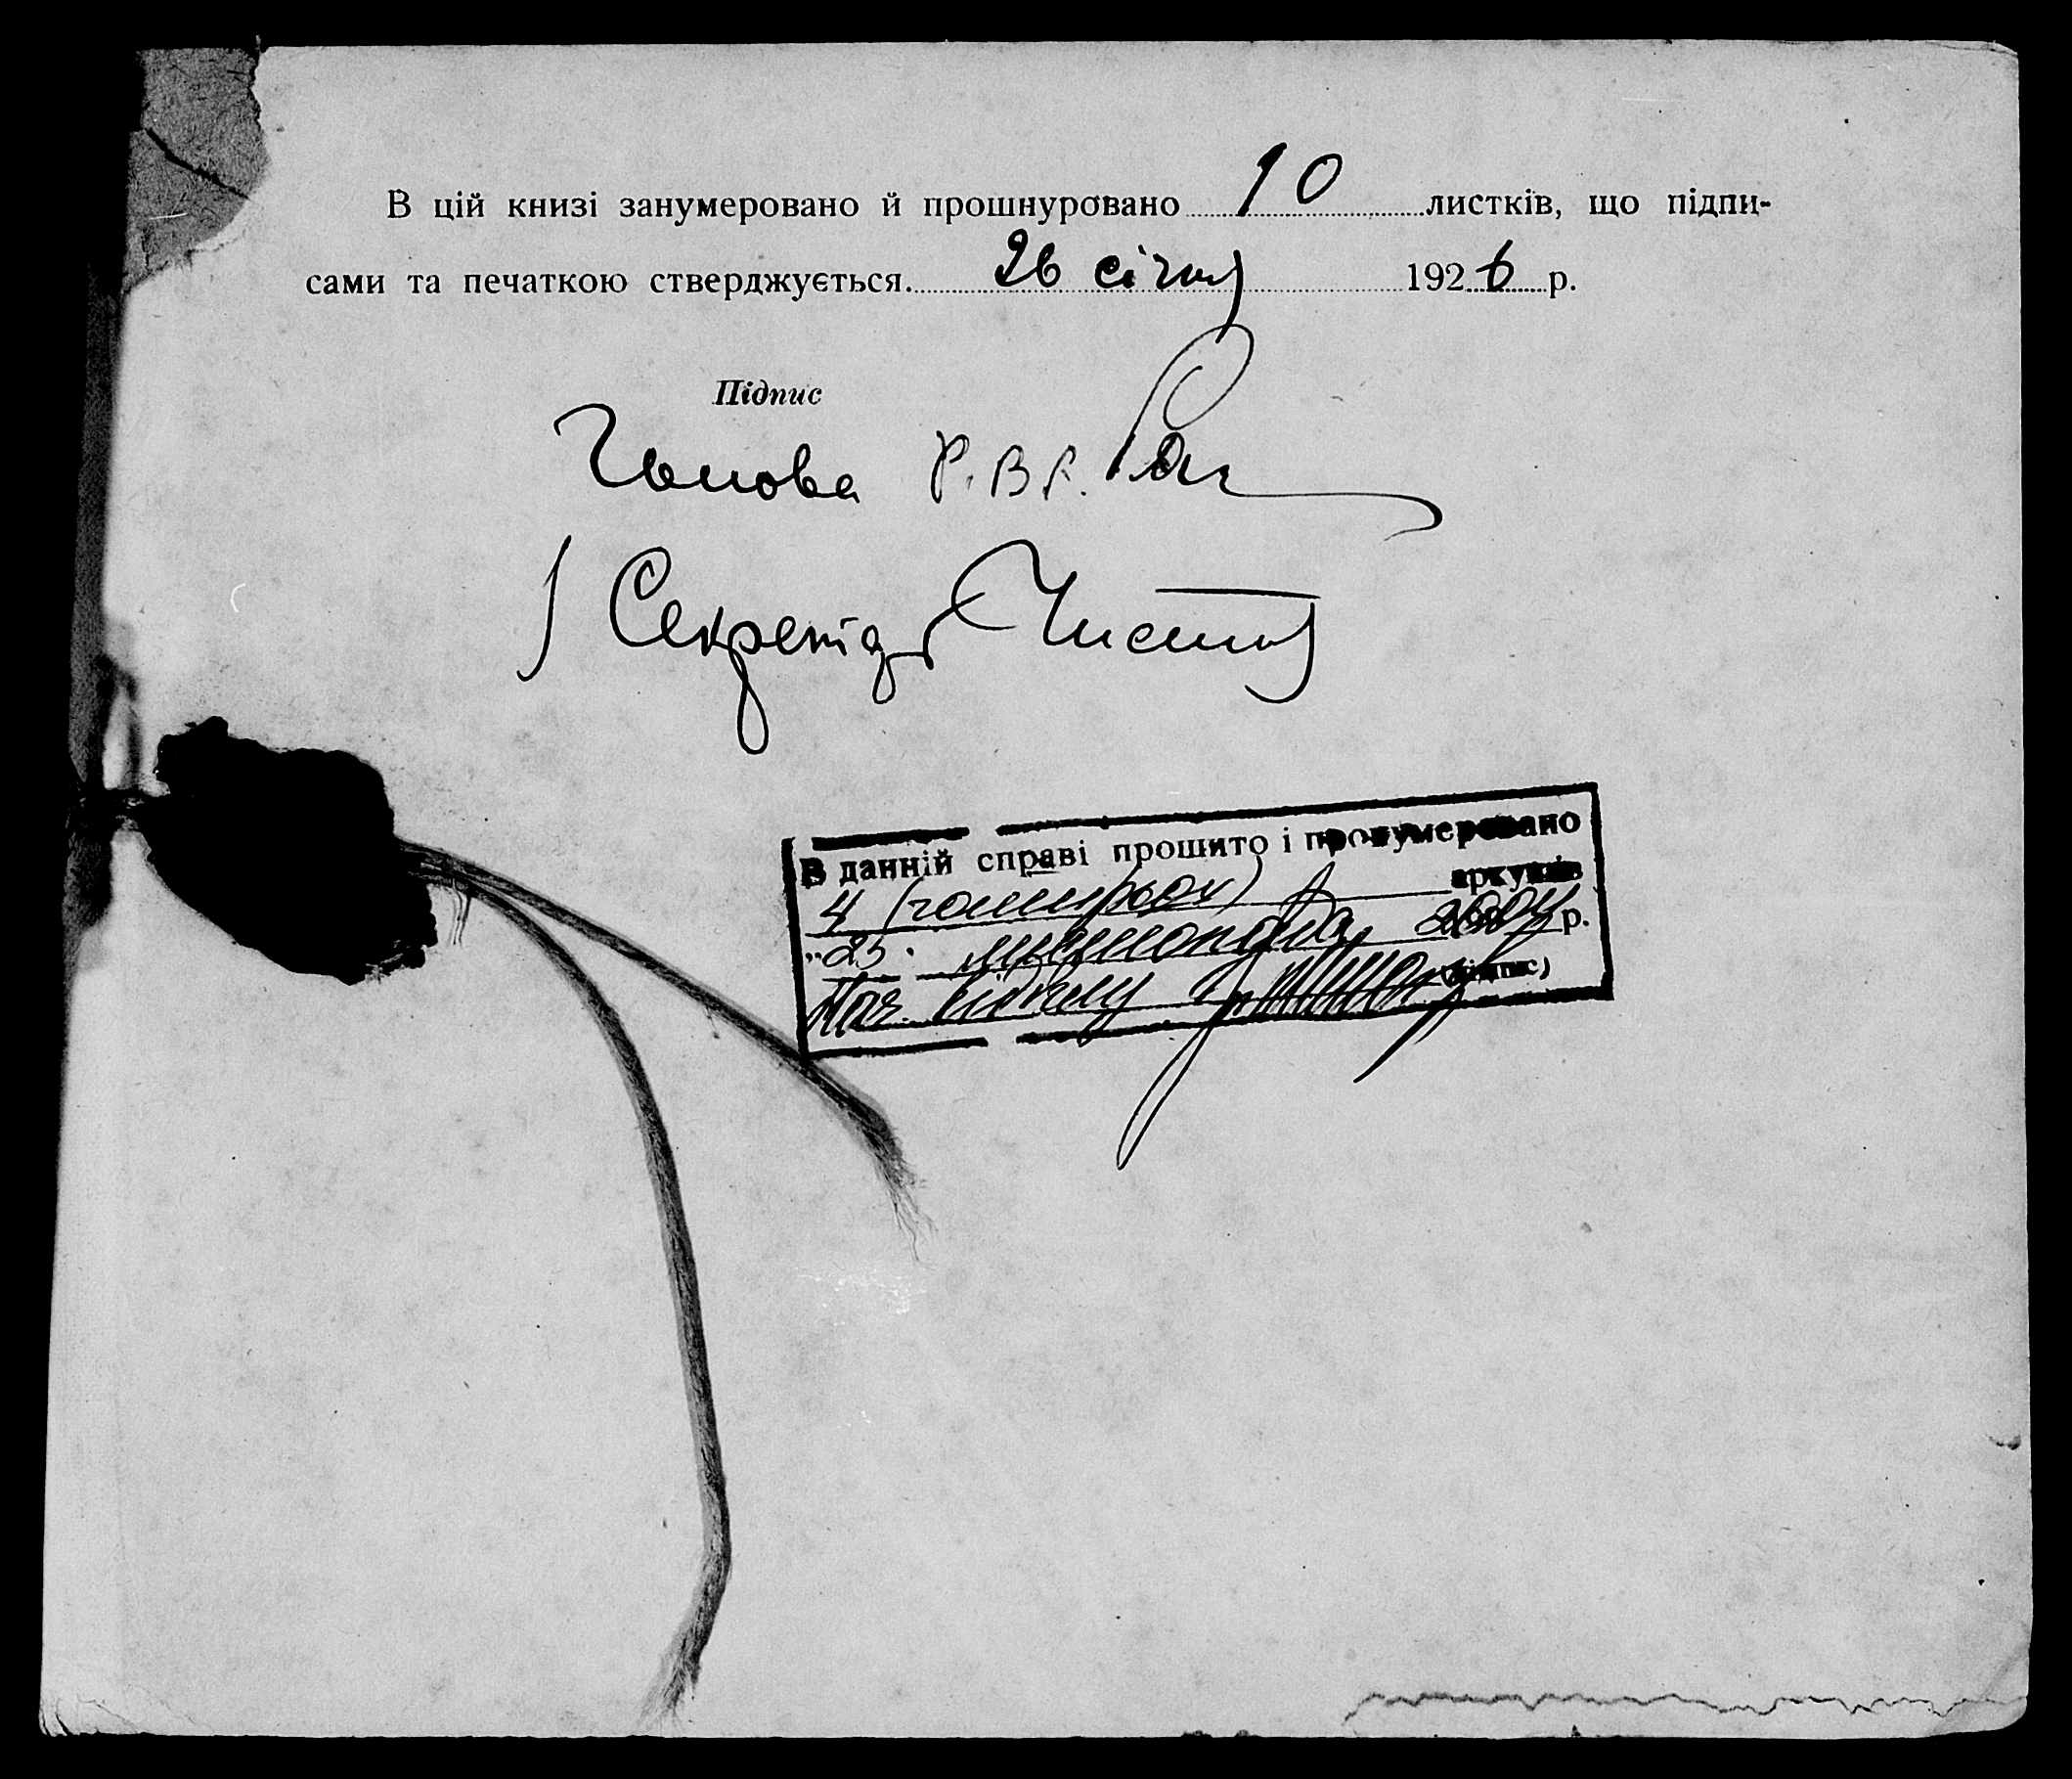 В цій книзі занумеровано й прошнуровано 10 листків, що підпи-
сами та печаткою стверджується. 26 січня 1926 р.
Підпис
Голова Р.В.К.
Секретар
В данній справі прошито і пронумеровано
4 (чотири) аркушів
"25" листопада 2004 р.
Нач. відділу (підпис)